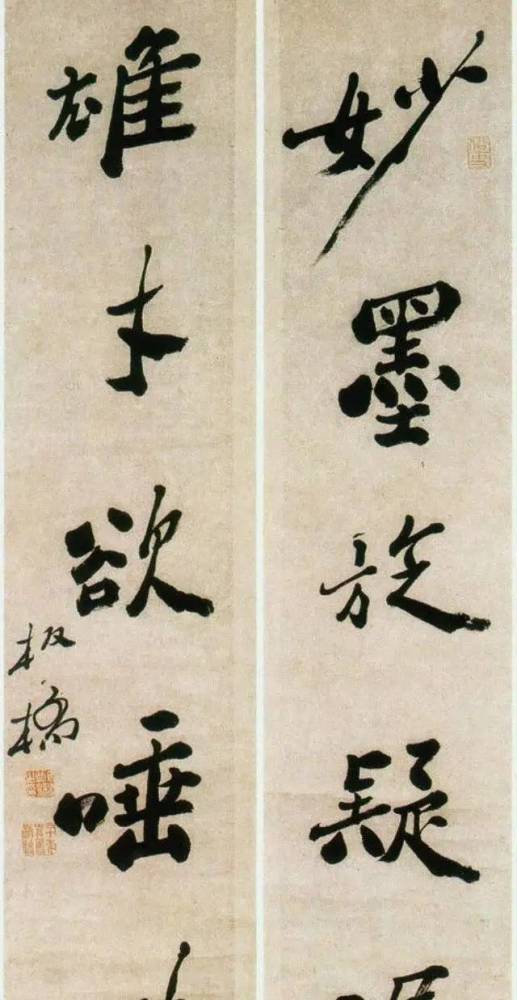 妙墨旋疑
雄才欲唾
板橋